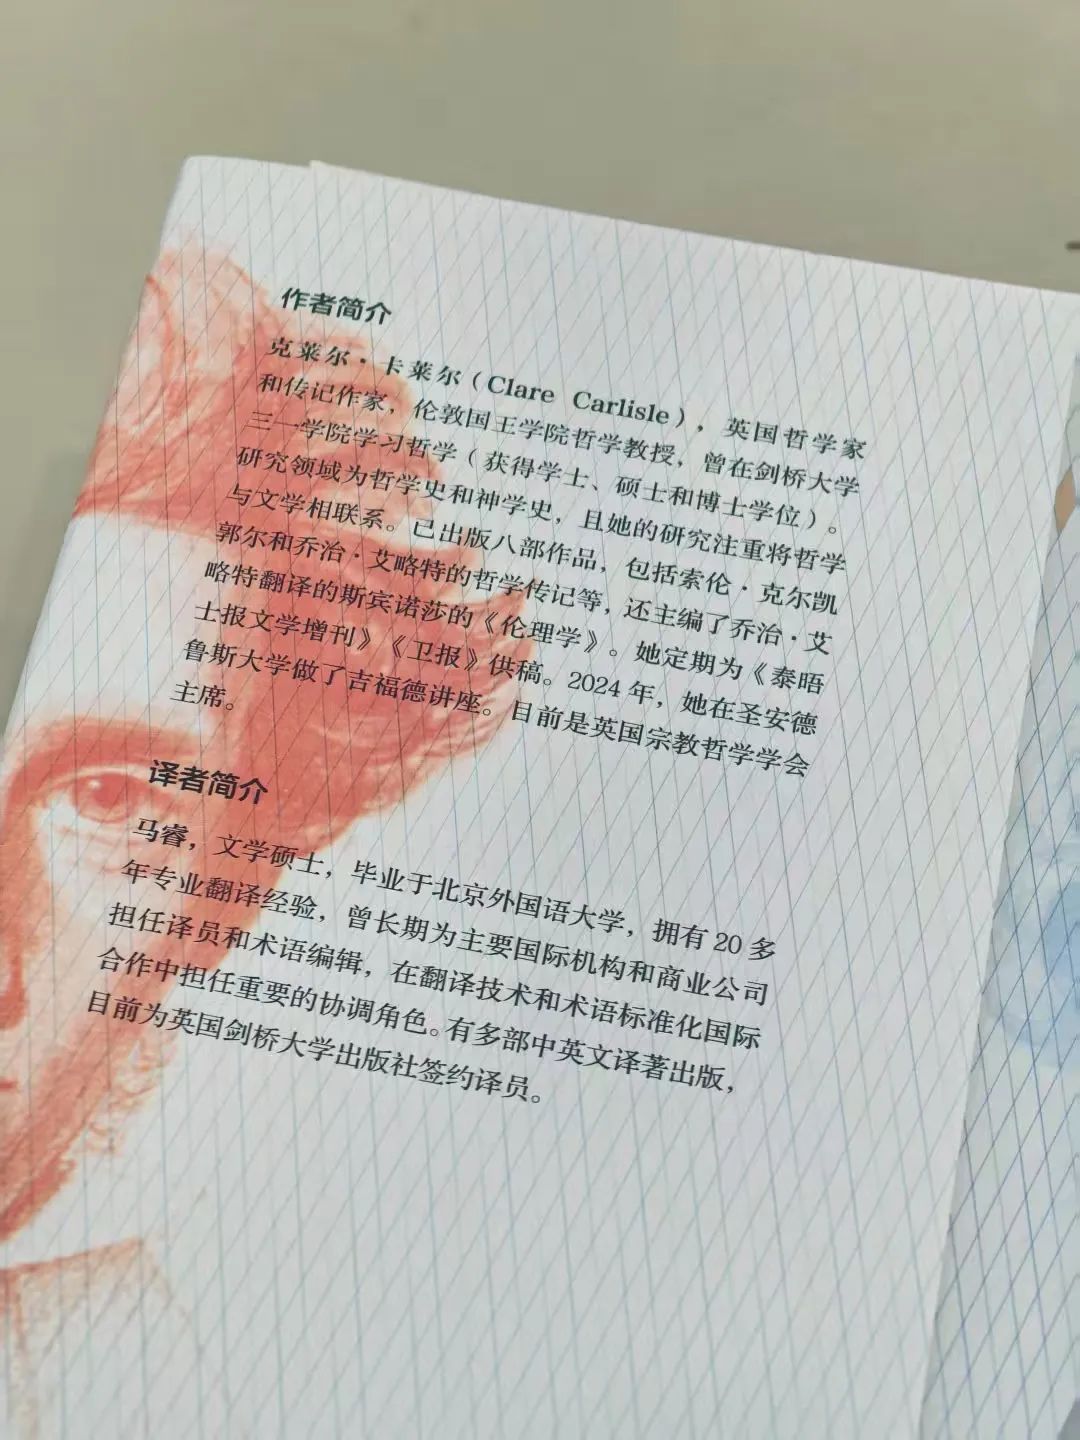 作者简介
克莱尔·卡莱尔（Clare Carlisle），英国哲学家
和传记作家，伦敦国王学院哲学教授，曾在剑桥大学
三一学院学习哲学（获得学士、硕士和博士学位）。
研究领域为哲学史和神学史，且她的研究注重将哲学
与文学相联系。已出版八部作品，包括索伦·克尔凯
郭尔和乔治·艾略特的哲学传记等，还主编了乔治·艾
略特翻译的斯宾诺莎的《伦理学》。她定期为《泰晤
士报文学增刊》《卫报》供稿。2024 年，她在圣安德
鲁斯大学做了吉福德讲座。目前是英国宗教哲学学会
主席。
译者简介
马睿，文学硕士，毕业于北京外国语大学，拥有 20 多
年专业翻译经验，曾长期为主要国际机构和商业公司
担任译员和术语编辑，在翻译技术和术语标准化国际
合作中担任重要的协调角色。有多部中英文译著出版，
目前为英国剑桥大学出版社签约译员。